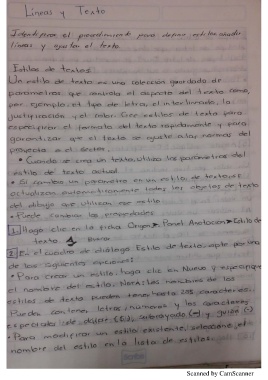 Lineas y Texto
Identificar el procedimiento para definir estilos añadir
lineas y ajustar el texto.
Estilos de textos:
Un estilo de texto es una colección guardada de
parámetros que controla el aspecto del texto como,
por ejemplo, el tipo de letra, el interlineado, la
justificación y el color. Cree estilos de texto para
especificar el formato del texto rapidamente y para
garantizar que el texto se ajuste a las normas del
proyecto o el sector.
• Cuando se crea un texto, utiliza los parámetros del
estilo de texto actual.
• Si cambia un parámetro en un estilo de texto se
actualizan automáticamente todos los objetos de texto
del dibujo que utilizan ese estilo.
• Puede cambiar las propiedades
1 Haga clic en la ficha Origen > Panel Anotación > Estilo de
texto. Buscar
2 En el cuadro de diálogo Estilo de texto, opte por una
de las siguientes opciones:
• Para crear un estilo, haga clic en Nuevo y especifique
el nombre del estilo. Nota: los nombres de los
estilos de texto pueden tener hasta 255 caracteres.
Pueden contener letras, números y los caracteres
especiales de dólar ($), subrayado (_) y guión (-)
• Para modificar un estilo existente, seleccione el
nombre del estilo en la lista de estilos.
Scanned by CamScanner